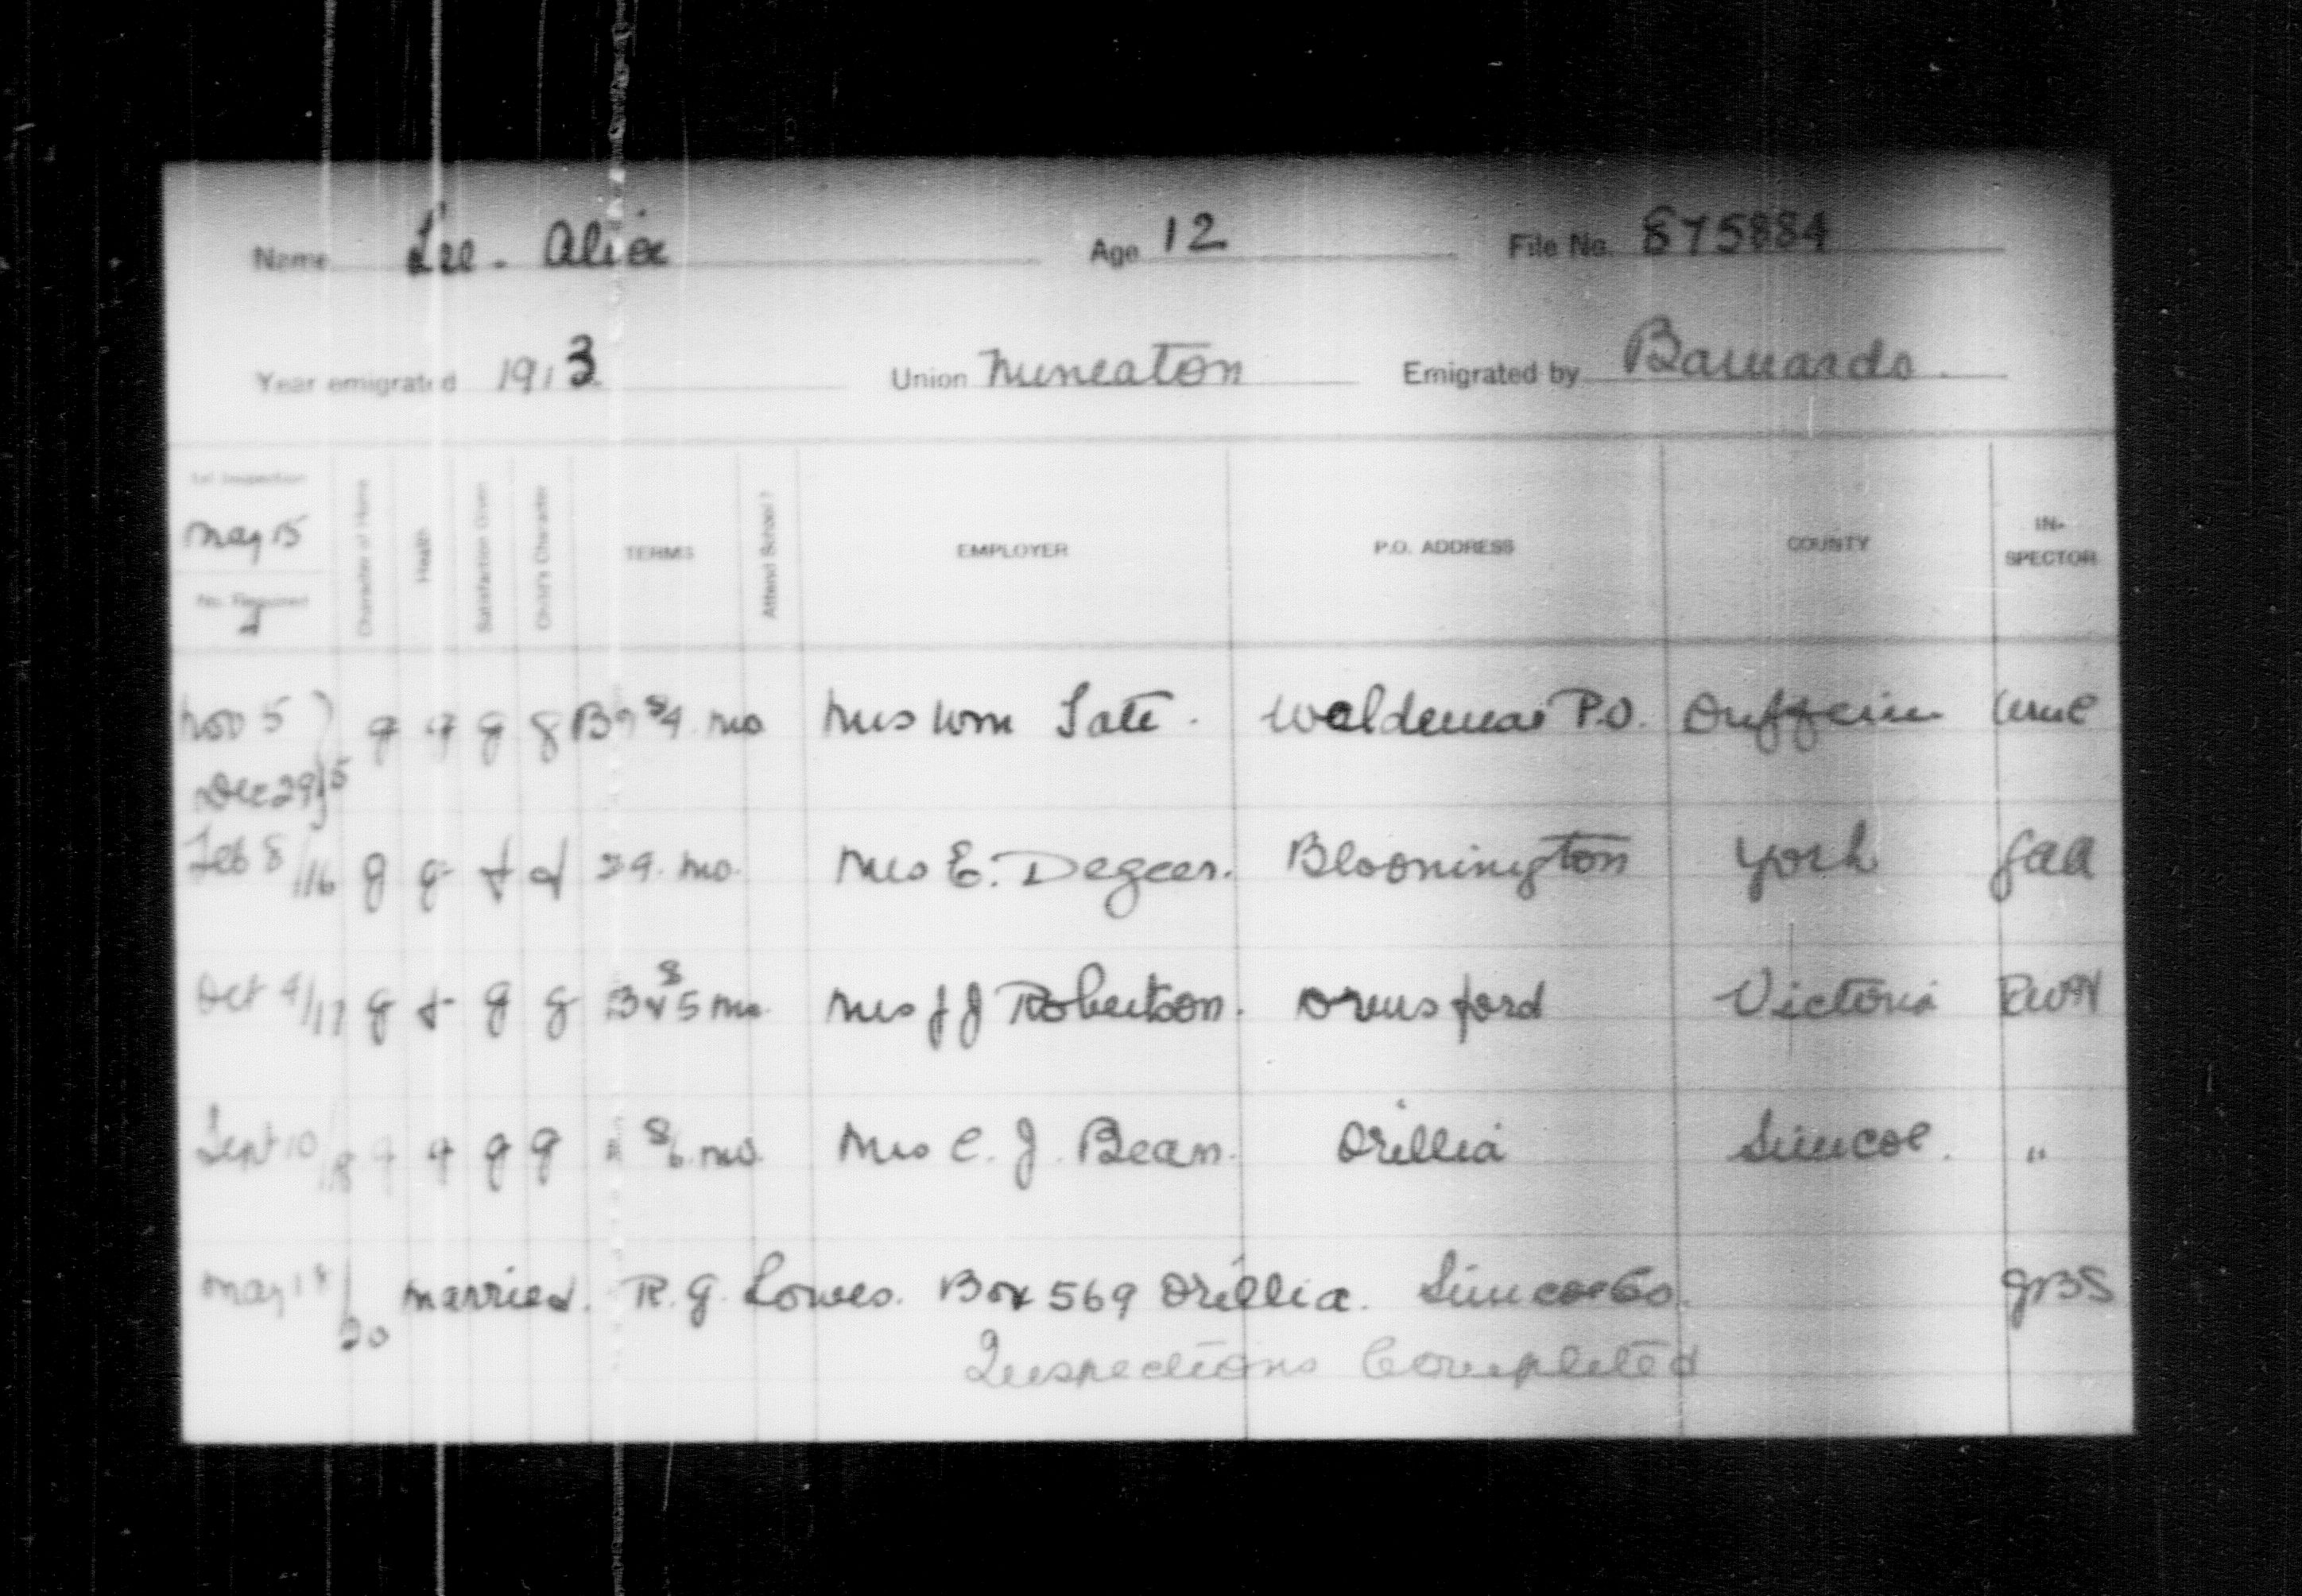 Name Lee. Alice Age 12 File No. 875884
Year emigrated 1913 Union Nuneaton Emigrated by Barnardo.
1st Inspection May 15 No. Required Character of Home Health Satisfaction Given Child's Character TERMS Attend School? EMPLOYER P.O. ADDRESS COUNTY IN-SPECTOR
Nov 5 g g g g mo Mrs Wm Tate. Waldemar P.O. Dufferin
Dec 29 } 5
Feb 8/16 g g f f 9. mo. Mrs E. Degeer. Bloomington York
Oct 4/17 g f g g 5 mo. Mrs J J Robertson. Orensford Victoria
Sept 10/18 g g g g $6. mo. Mrs C. J. Bean. Orillia Simcoe. "
May 18/20 married. R. G. Lowes. Box 569 Orillia. Simcoe Co. GBS
Inspections Completed